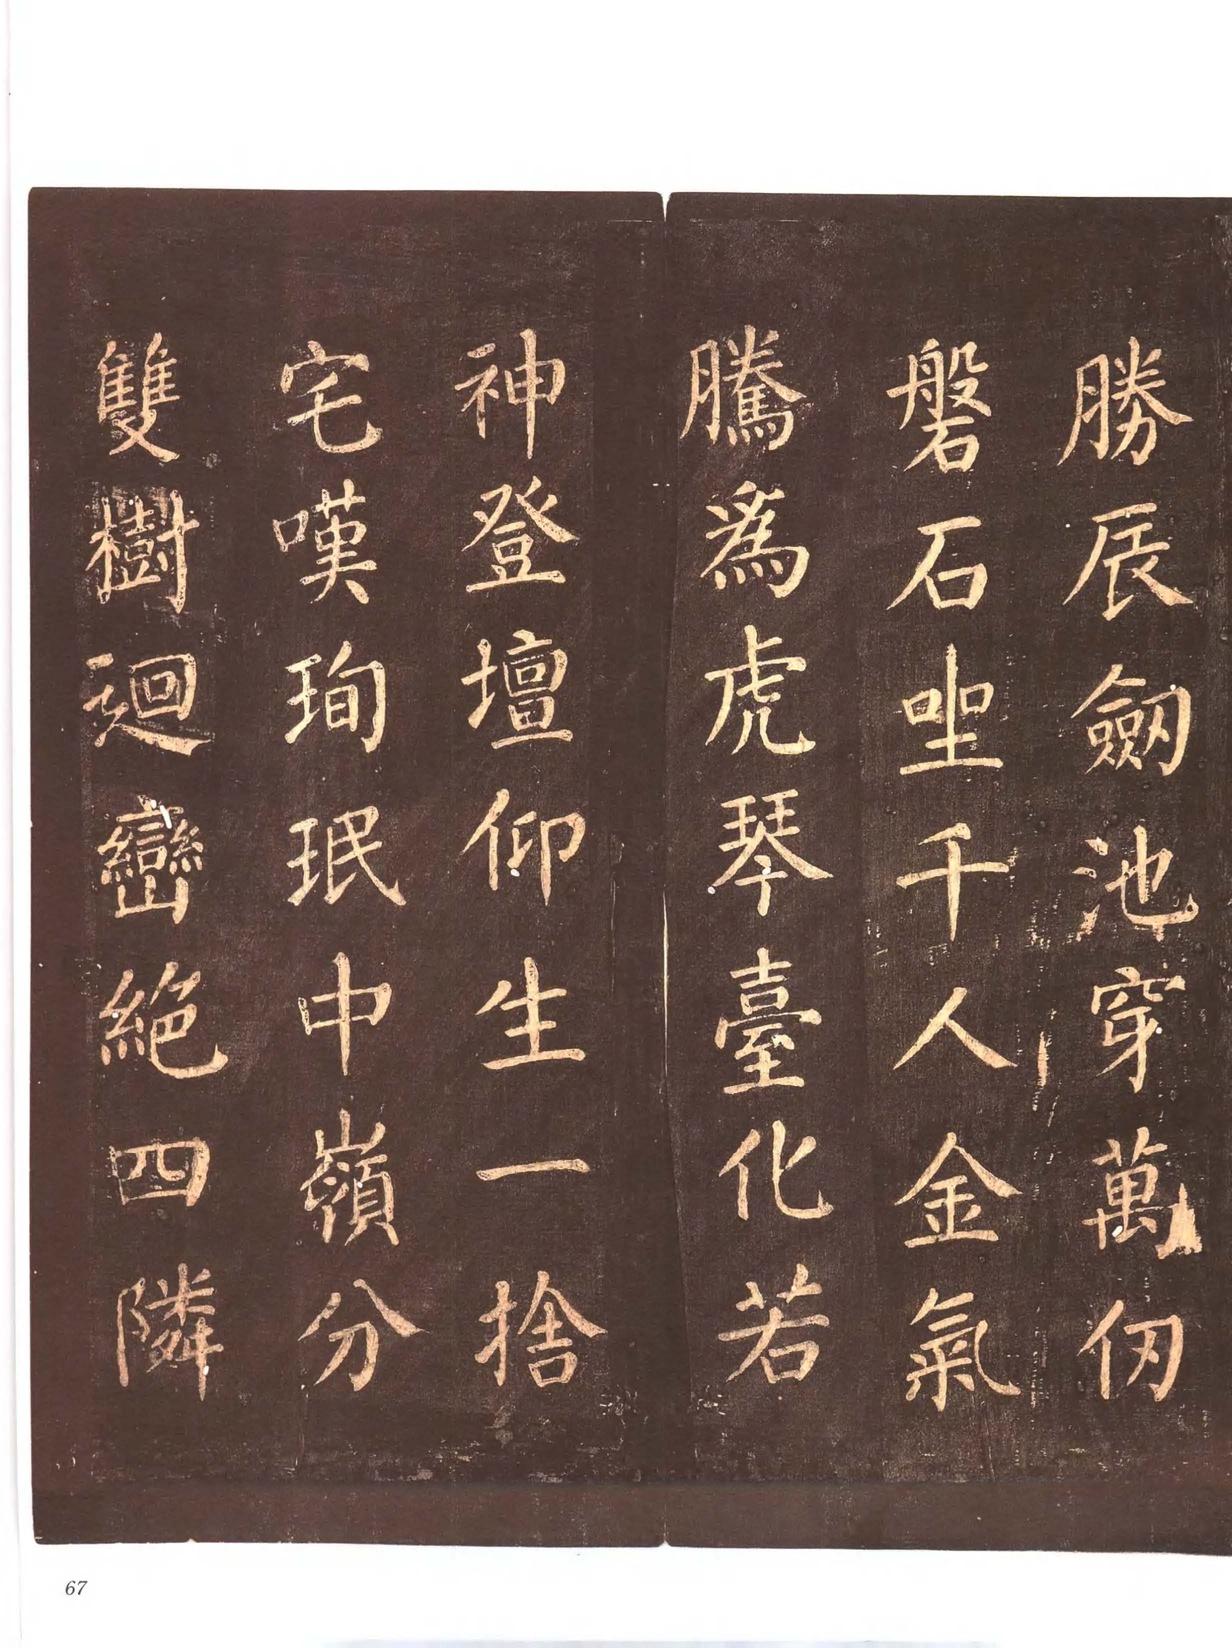 勝辰劒池穿萬仞
磐石坐千人金氣
騰爲虎琴臺化若
神登壇仰生一捨
宅嘆珣珉中嶺分
雙樹迴巒絕四隣
67